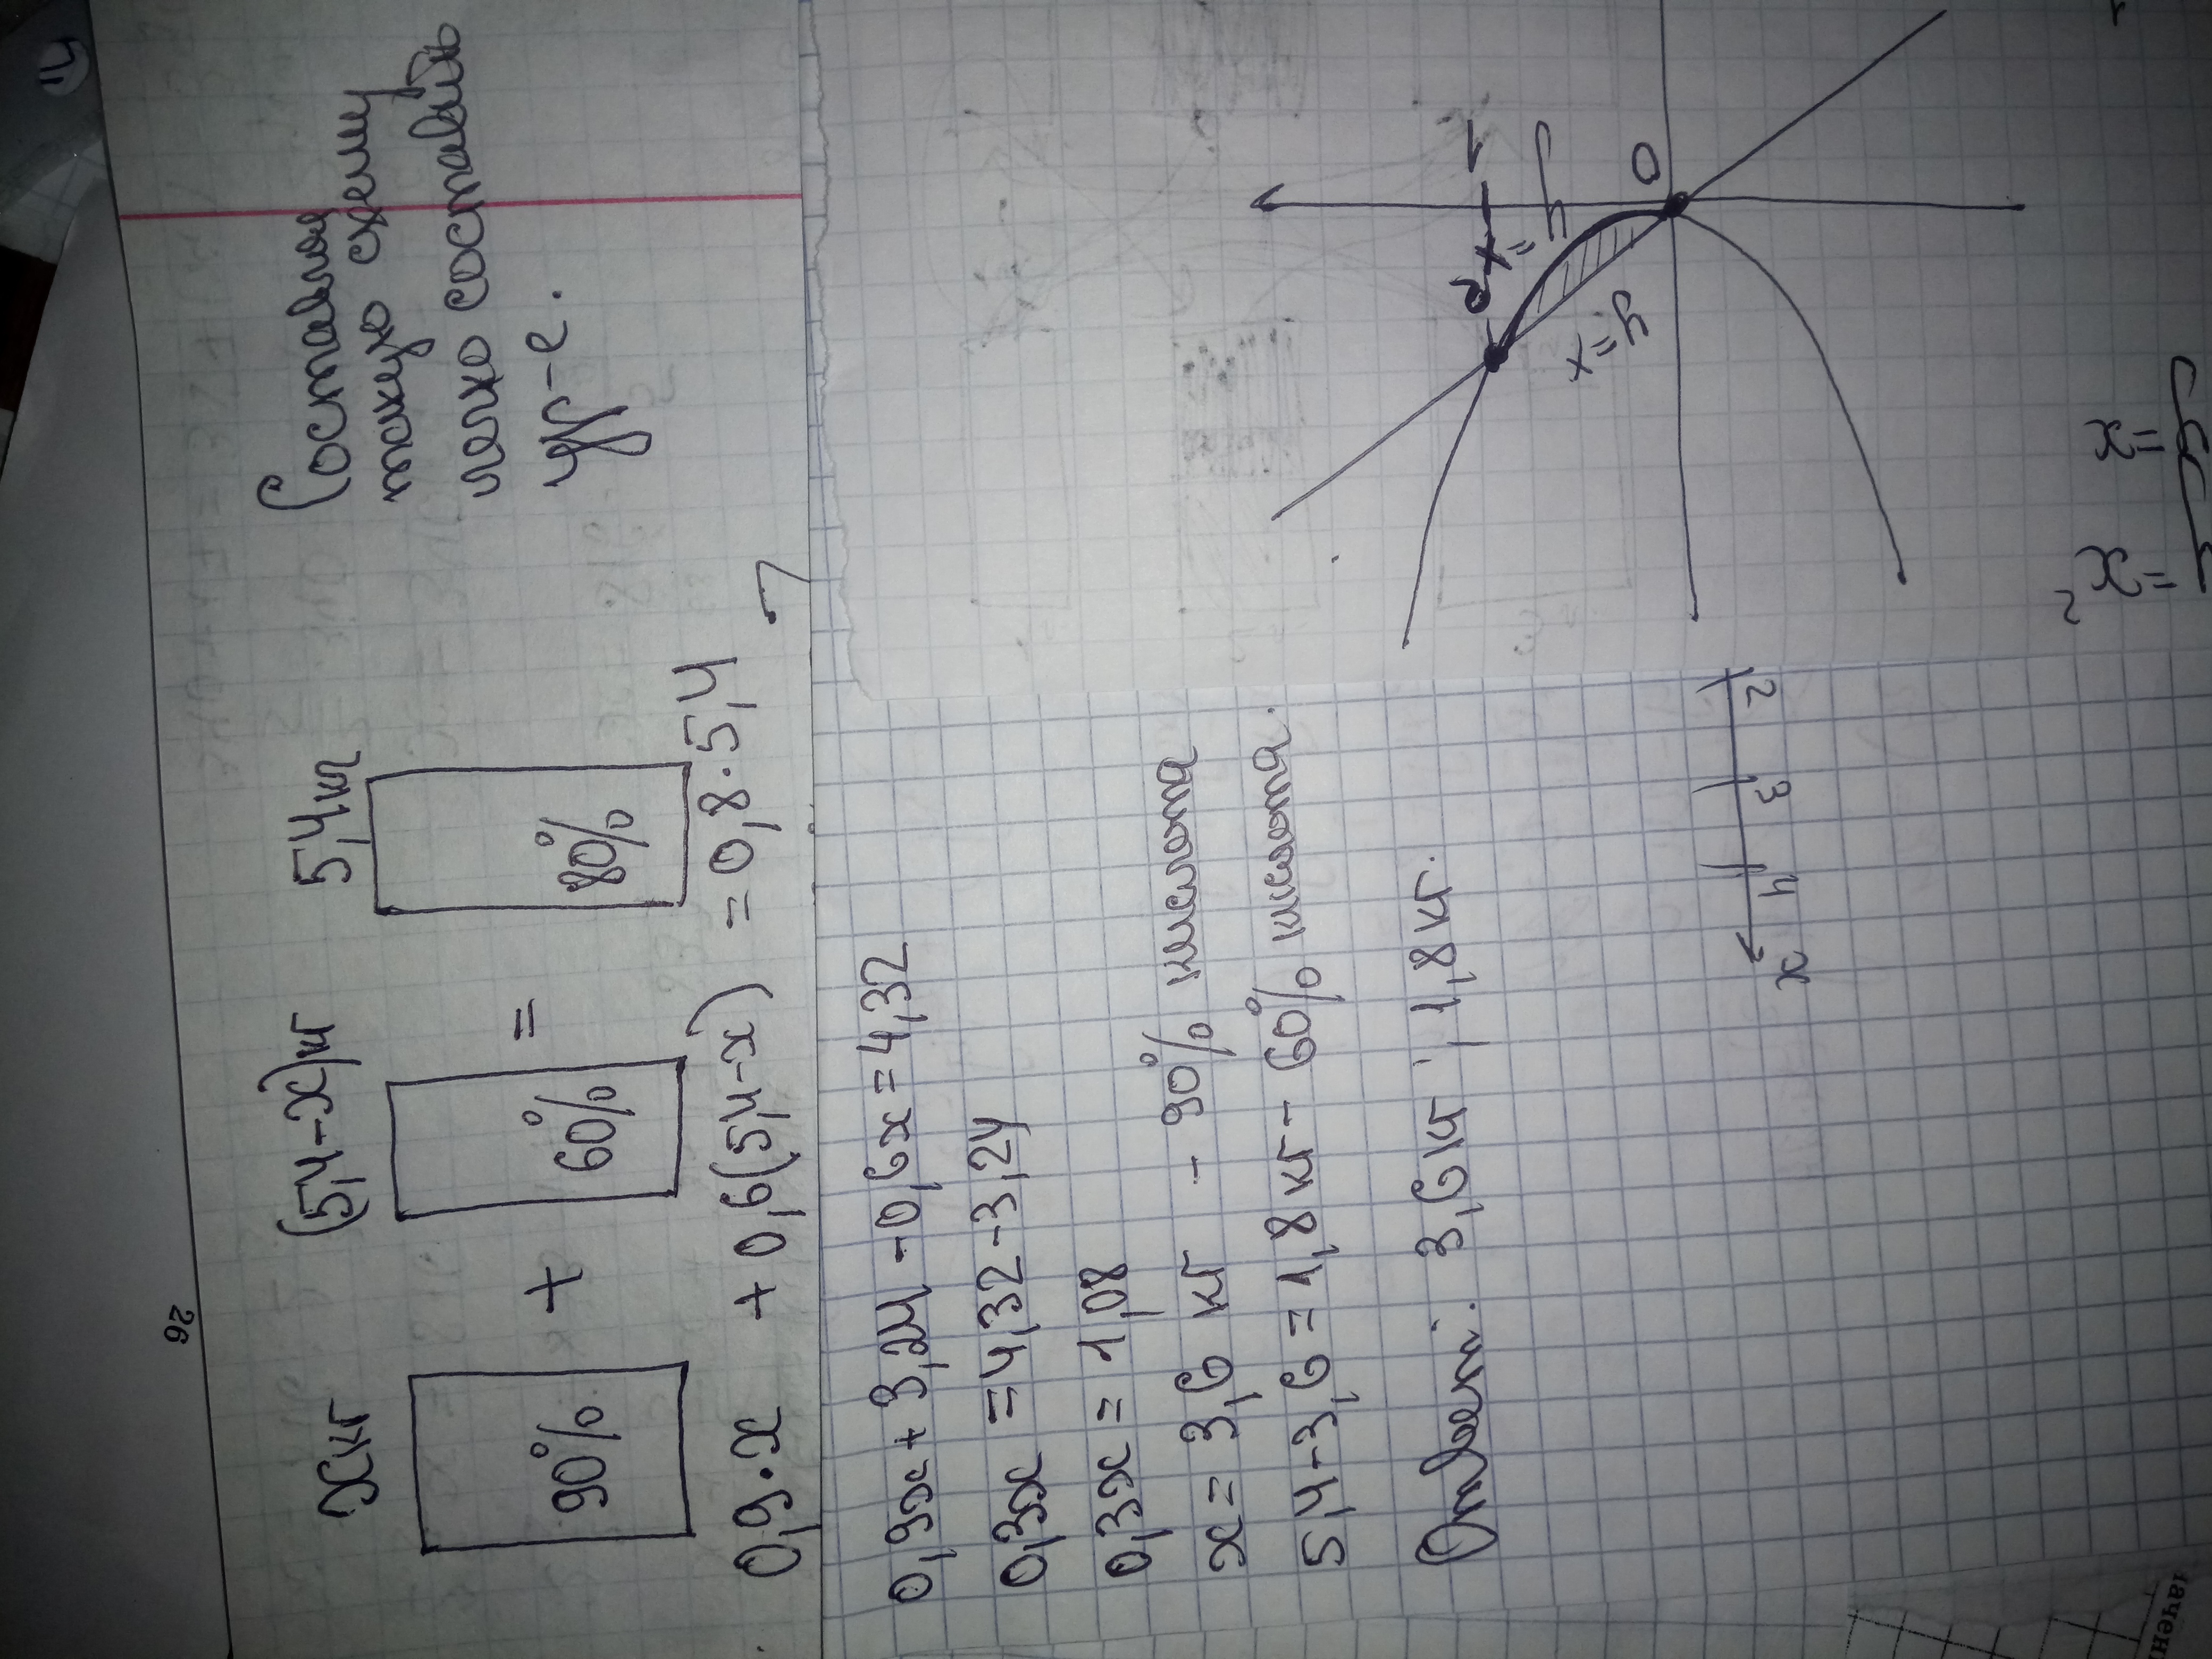 26
x кг (5,4-x) кг 5,4 кг
90% + 60% = 80%
0,9·x + 0,6(5,4-x) = 0,8·5,4
Составляя
такую схему
легко составить
ур-е.
0,9x + 3,24 - 0,6x = 4,32
0,3x = 4,32 - 3,24
0,3x = 1,08
x = 3,6 кг - 90% кислота
5,4-3,6 = 1,8 кг - 60% кислота.
Ответ: 3,6 кг; 1,8 кг.
x 4 3 2
0
y = x